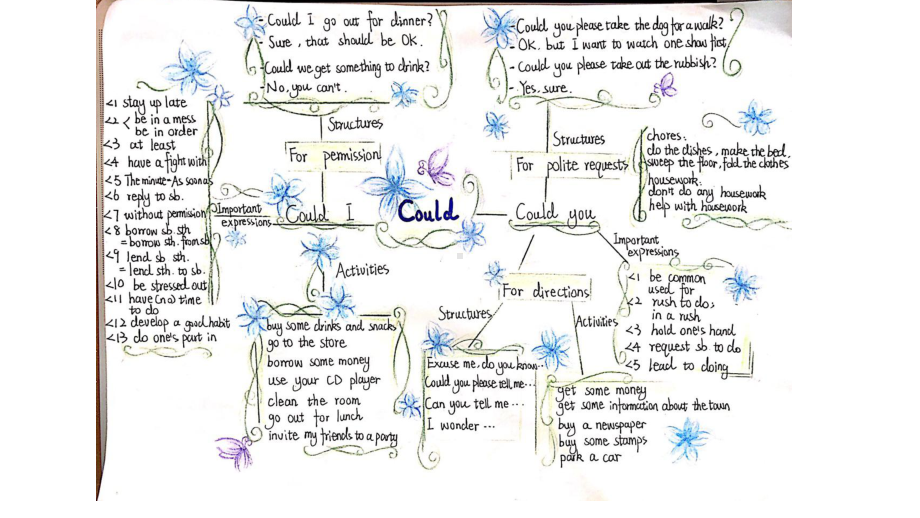 - Could I go out for dinner?
- Sure, that should be OK.
- Could we get something to drink?
- No, you can't.
- Could you please take the dog for a walk?
- OK, but I want to watch one show first.
- Could you please take out the rubbish?
- Yes, sure.
<1 stay up late
<2 < be in a mess
be in order
<3 at least
<4 have a fight with
<5 The minute-As soon as
<6 reply to sb.
<7 without permission
<8 borrow sb. sth
= borrow sth. from sb
<9 lend sb sth.
= lend sth. to sb.
<10 be stressed out
<11 have (no) time
to do
<12 develop a good habit
<13 do one's part in
Structures
For permission
Important
expressions
Could I
Could
Could you
Structures
For polite requests
chores:
do the dishes, make the bed,
sweep the floor, fold the clothes
housework.
don't do any housework
help with housework
Important
expressions
<1 be common
used for
<2 rush to do;
in a rush
<3 hold one's hand
<4 request sb to do
<5 lead to doing
Activities
buy some drinks and snacks
go to the store
borrow some money
use your CD player
clean the room
go out for lunch
invite my friends to a party
For directions
Structures
Excuse me, do you know...
Could you please tell me...
Can you tell me ...
I wonder ...
Activities
get some money
get some information about the town
buy a newspaper
buy some stamps
park a car